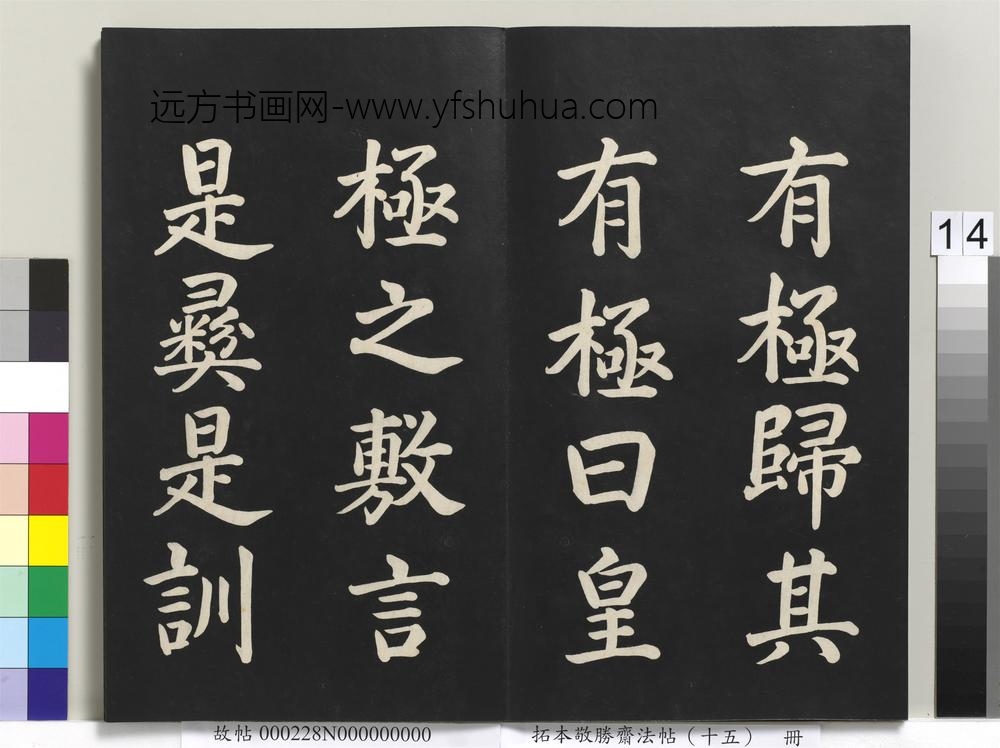 远方书画网-www.yfshuhua.com
有極歸其
有極曰皇
極之敷言
是彝是訓
14
故帖 000228N000000000
拓本敬勝齋法帖（十五） 冊